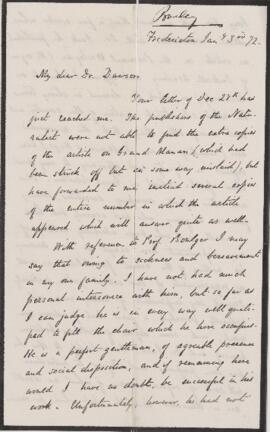 Fredericton Jany 3rd 72.
My dear Dr. Dawson,
Your letter of Dec 27th has
just reached me. The publishers of the Natu-
ralist were not able to find the extra copies
of the article on Grand Manan (which had
been struck off but in some way mislaid), but
have forwarded to me instead several copies
of the entire number in which the article
appeared which will answer quite as well.
With reference to Prof. I may
say that owing to sickness and bereavement
in my own family, I have not had much
personal intercourse with him, but so far as
I can judge he is in every way well quali-
fied to fill the chair which he now occupies.
He is a perfect gentleman, of agreeable presence
and social disposition, and if remaining here
would I have no doubt, be successful in his
work. Unfortunately, however, he had not